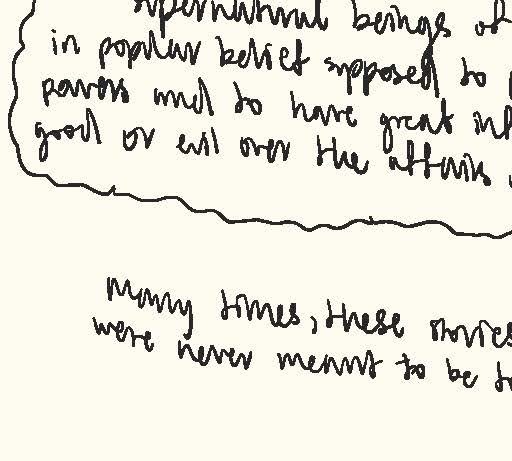 supernatural beings of
in popular belief supposed to
powers and to have great inf
good or evil over the affairs
many times, these stories
were never meant to be to